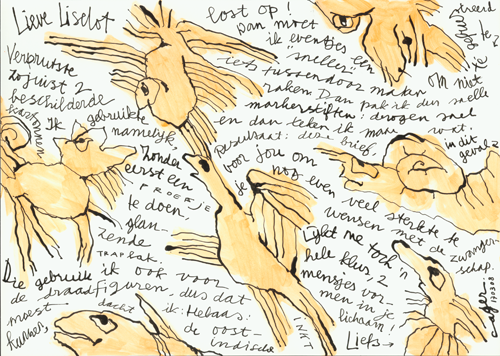 Lieve Liselot
Verprutste
zojuist 2
beschilderde
kaarsen
Ik gebruikte
namelijk,
zonder
eerst een
PROEFJE
te doen,
glan-
zende
TRAPLAK.
Die gebruik ik ook voor
de draadfiguren, dus dat
meest dacht ik. Helaas:
de oost-
indische
INKT
lost op!
Dan moet
ik eventjes een
"sneller"
iets tussendoor maken
raken. Dan pak ik dus snelle
markerstiften: drogen snel
en dan teken ik maar wat.
Resultaat: deze brief,
voor jou om
je
nog even veel sterkte te
wensen met de zwanger-
schap.
Lijkt me toch 'n
hele klus, 2
mensjes vor-
men in je
lichaam!
Liefs →
om niet
te
in dit
geval 2